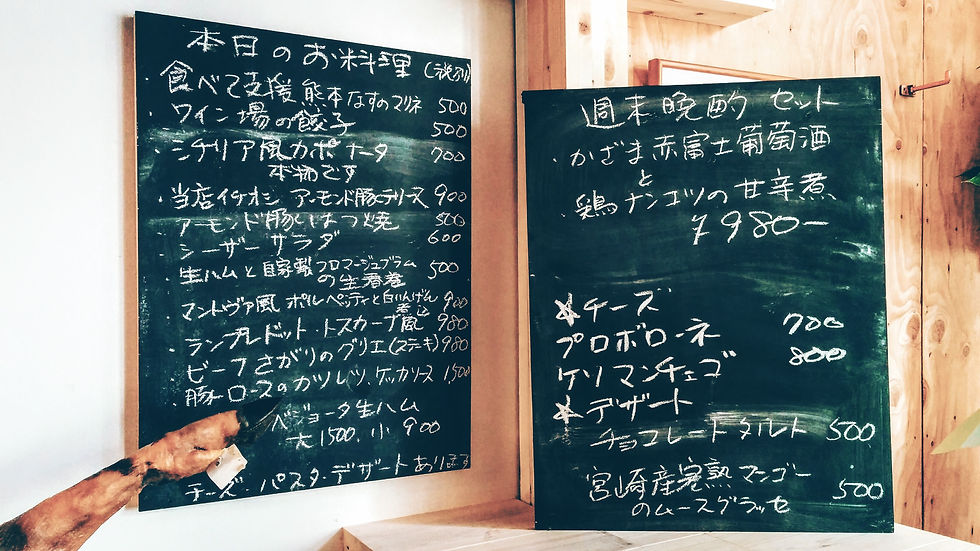 本日のお料理 (税別)
・食べて支援 熊本なすのマリネ 500
・ワイン場の餃子 500
・シチリア風カポナータ 700
本物です
・当店イチオシ アーモンド豚テリーヌ 900
アーモンド豚はつ焼 500
シーザーサラダ 600
生ハムと自家製フロマージュブラン
の生春巻 500
マントヴァ風 ポルペッティと白いんげん
煮込 900
・ランプレドット・トスカーナ風 980
ビーフさがりのグリエ(ステーキ) 980
・豚ロースのカツレツ、ケッカソース 1,500
ベジョータ生ハム
大1500、小900
チーズ・パスタ・デザートあります
週末晩酌セット
・かざま赤富士葡萄酒
と
・鶏ナンコツの甘辛煮
¥980-
☆チーズ
プロボローネ 700
ケソマンチェゴ 800
☆デザート
チョコレートタルト 500
宮崎産完熟マンゴー
のムースグラッセ 500